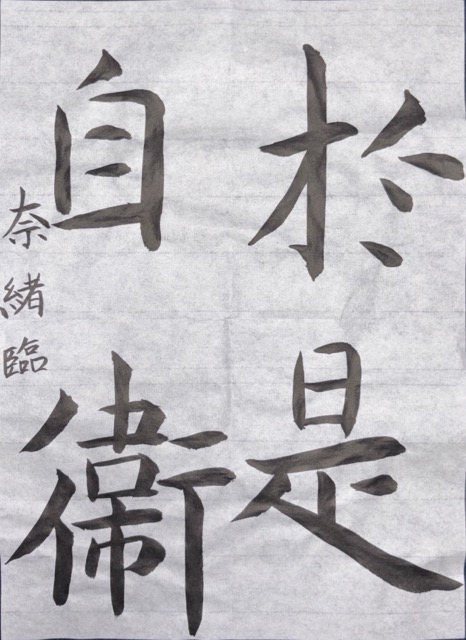 於是
自衛
奈緒臨